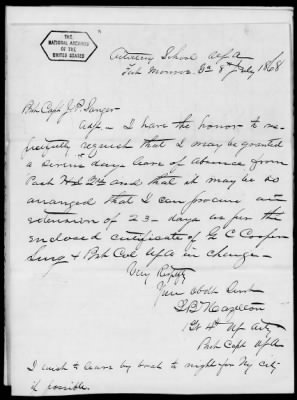 THE
NATIONAL ARCHIVES
OF THE
UNITED STATES
Artillery School U.S.A.
Fort Monroe Va 8th July 1868
Bvt Capt J.P. Sanger
Adjt — I have the honor to re-
spectfully request that I may be granted
a seven days leave of absence from
Post Hd Qrs and that it may be so
arranged that I can procure an
extension of 23 – days as per the
enclosed certificate of G C Cooper
Surg & Bvt Col U.S.A in charge –
Very Respfy
Your obdt Servt
Hazelton
1st Lt 4th Us Arty
Bvt Capt U.S.A
I wish to leave by boat to night for Ny City
if possible.